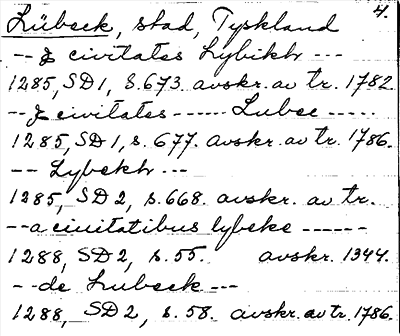 4.
Lübeck, stad, Tyskland
-- & civitates Lybikh ---
1285, SD 1, s. 673. avskr. av tr. 1782.
-- & civitates ------ Lubec -----
1285, SD 1, s. 677. avskr. av tr. 1786.
-- Lybekh ---
1285, SD 2, s. 668. avskr. av tr.
-- a ciuitatibus lybeke ------
1288, SD 2, s. 55. avskr. 1344.
-- de Lubeck ---
1288, SD 2, s. 58. avskr. av tr. 1786.